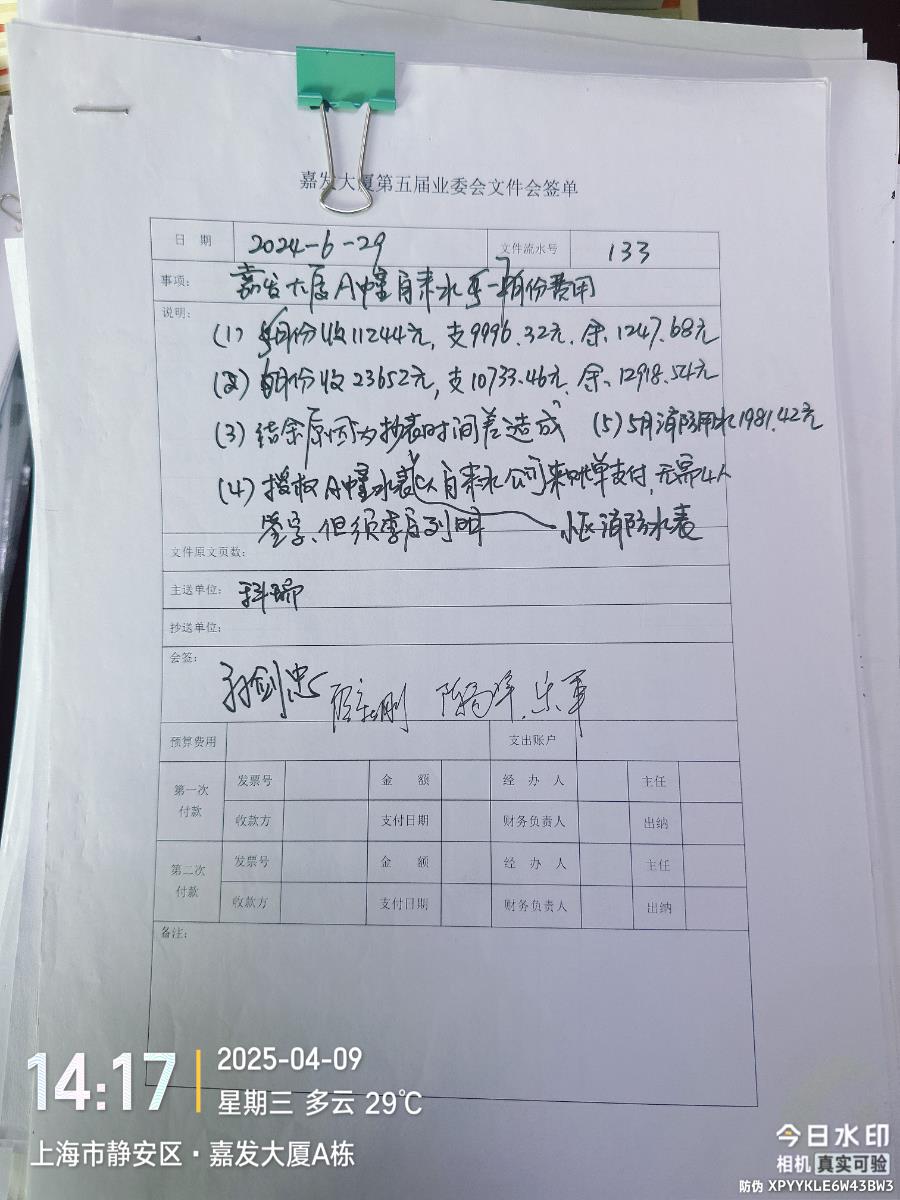 嘉发大厦第五届业委会文件会签单
日 期 2024-6-29 文件流水号 133
事项: 嘉发大厦A幢自来水 月份费用
说明: (1) 月份收11244元, 支9996.32元. 余.1247.68元
(2) 月份收23652元, 支10733.46元. 余.12918.54元
(3) 结余原因为抄表时间差造成 (5) 5月消防用水1981.42元
(4) 授权A幢水表以自来水公司来账单支付, 无需4人
签字、但须季后列明 小区消防水表
文件原文页数:
主送单位: 科瑞
抄送单位:
会签: 孙剑忠 乐军
预算费用 支出账户
第一次付款 发票号 金 额 经 办 人 主任
收款方 支付日期 财务负责人 出纳
第二次付款 发票号 金 额 经 办 人 主任
收款方 支付日期 财务负责人 出纳
备注:
14:17 2025-04-09
星期三 多云 29℃
上海市静安区·嘉发大厦A栋
今日水印
相机 真实可验
防伪 XPYYKLE6W43BW3